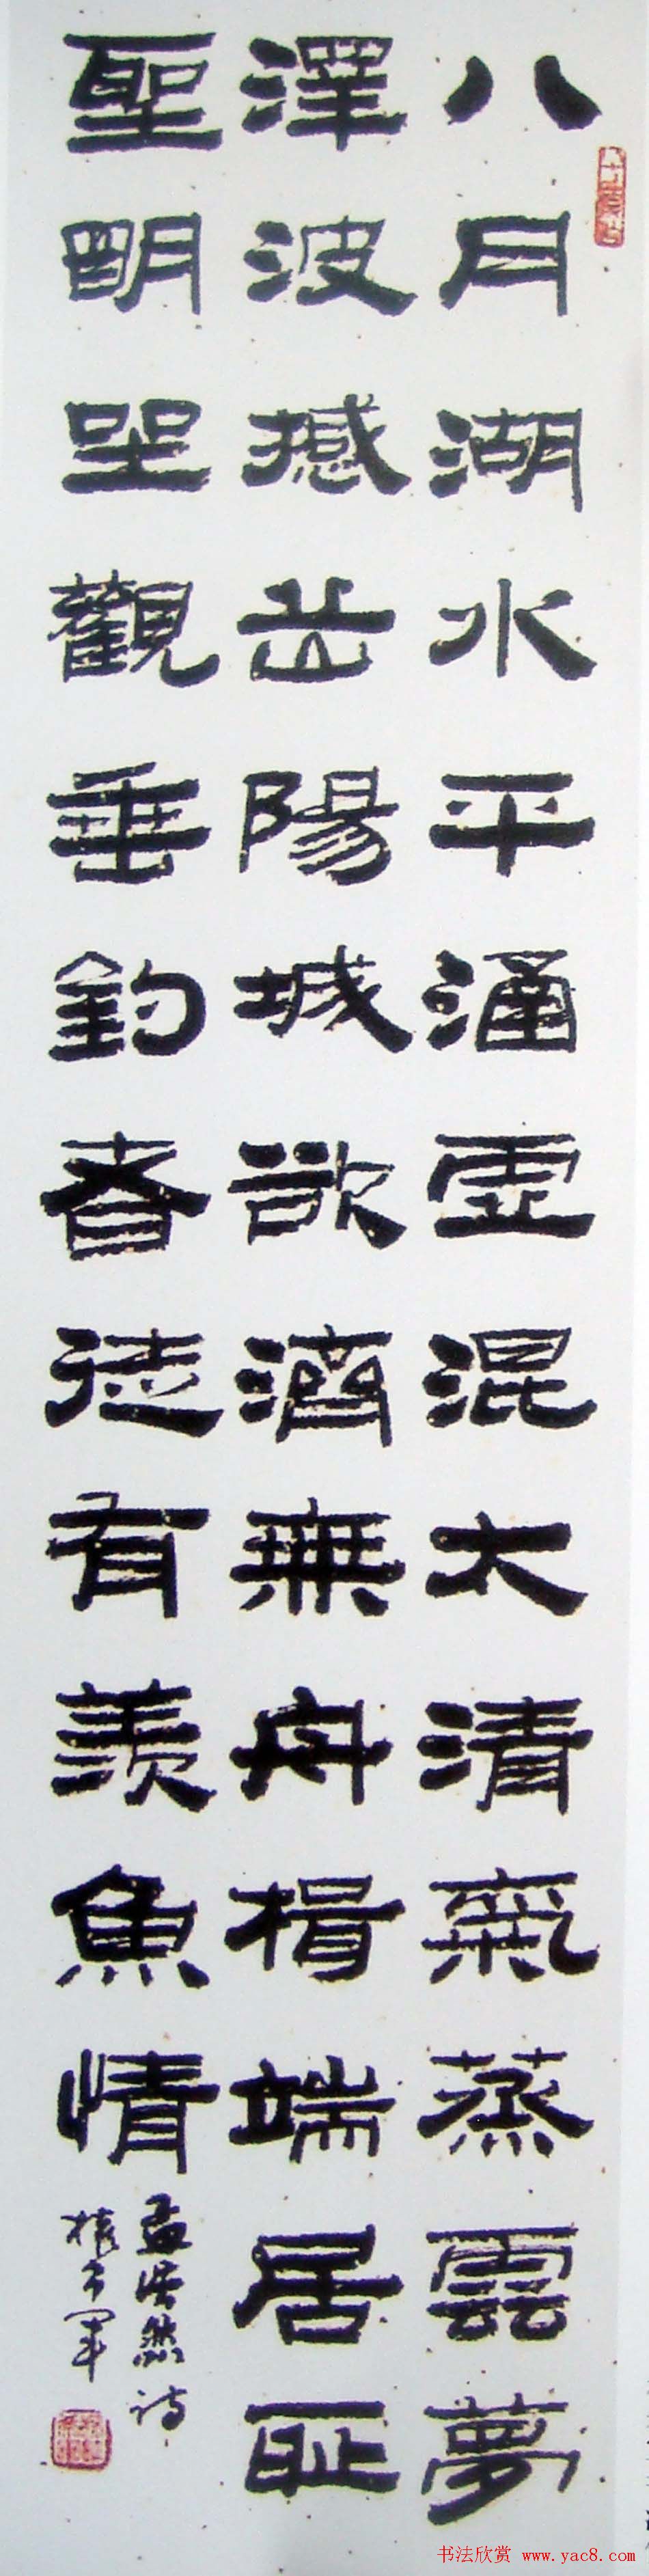 八月湖水平涵虛混太清氣蒸雲夢
澤波撼岳陽城欲濟無舟楫端居耻
聖明坐觀垂釣者徒有羨魚情
孟浩然诗
书法欣赏 www.yac8.com